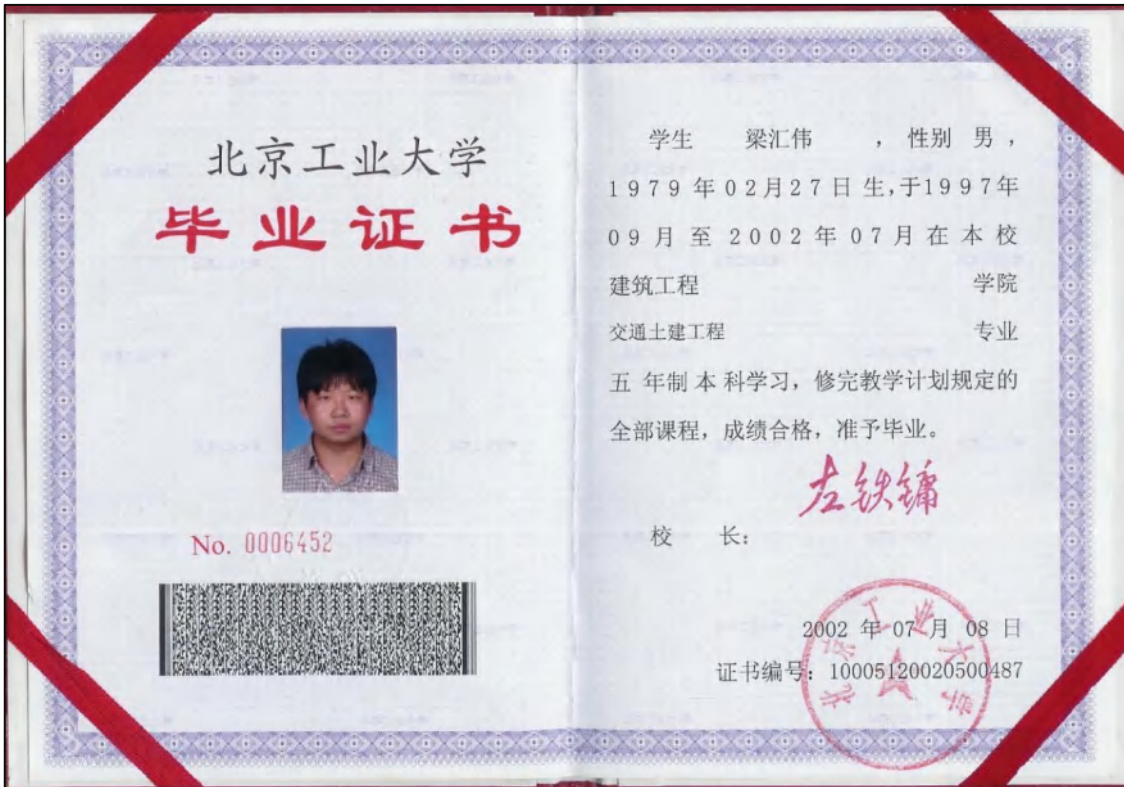 北京工业大学
毕业证书
No. 0006452
学生 梁汇伟 ，性别 男，
1979年02月27日生,于1997年
09月至2002年07月在本校
建筑工程 学院
交通土建工程 专业
五 年制本科学习，修完教学计划规定的
全部课程，成绩合格，准予毕业。
左铁镛
校 长：
2002 年 07 月 08 日
证书编号：100051200205000487
北京工业大学